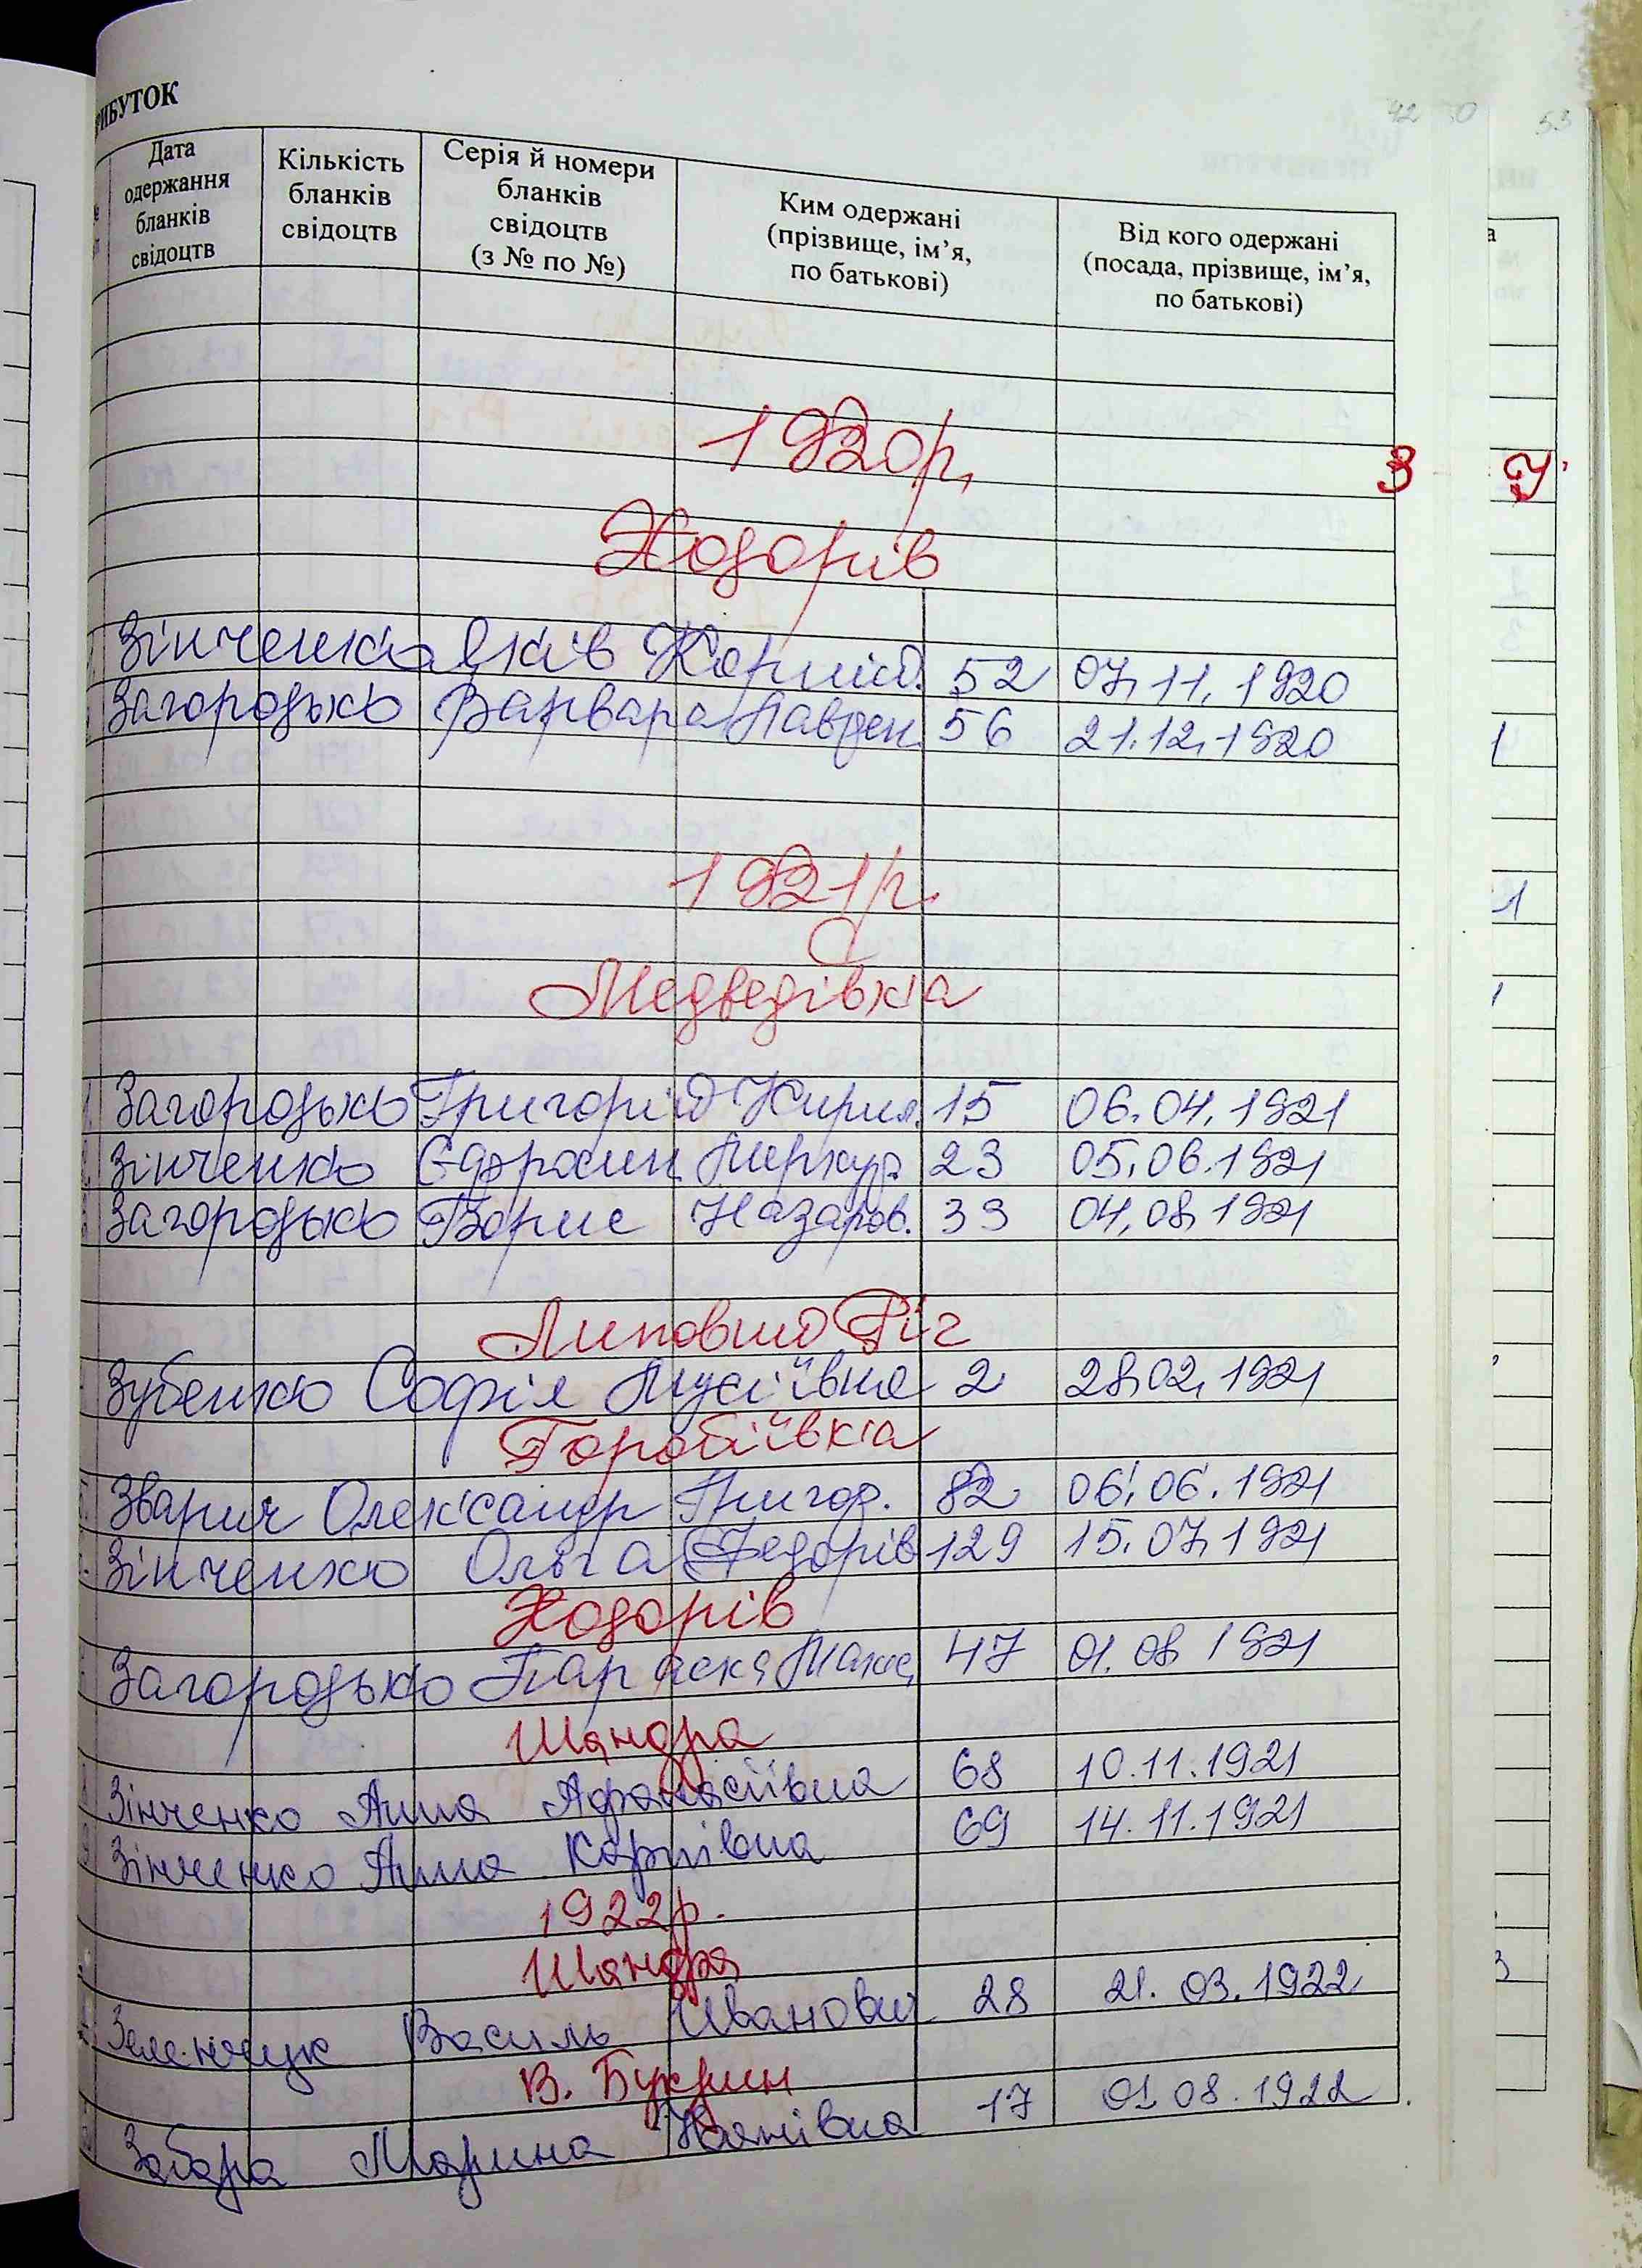 РИБУТОК
42 0 53
Дата одержання бланків свідоцтв
Кількість бланків свідоцтв
Серія й номери бланків свідоцтв (з № по №)
Ким одержані (прізвище, ім’я, по батькові)
Від кого одержані (посада, прізвище, ім’я, по батькові)
1920р.
З
Ходорів
Зінченко Яків Корній. 52 07.11.1920
Загородько Варвара Павден. 56 21.12.1920
1921р.
Медведівка
1. Загородько Григорій Кирил. 15 06.04.1921
Зінченко Єфросин Меркур. 23 05.06.1921
Загородько Борис Назаров. 39 04.08.1921
Липовий Ріг
Зубенко Софія Мусіївна 2 28.02.1921
Горобіївка
Зварич Олександр Григор. 82 06.06.1921
Зінченко Ольга Федорів 129 15.07.1921
Ходорів
Загородько Параска Макс. 47 01.08 1921
Шандра
8 Зінченко Анна Афанасіївна 68 10.11.1921
9 Зінченко Анна Карпівна 69 14.11.1921
1922р.
Шандра
Зеленчук Василь Іванович 28 21.03.1922
В. Букрин
Забара Марина 17 01.08.1922